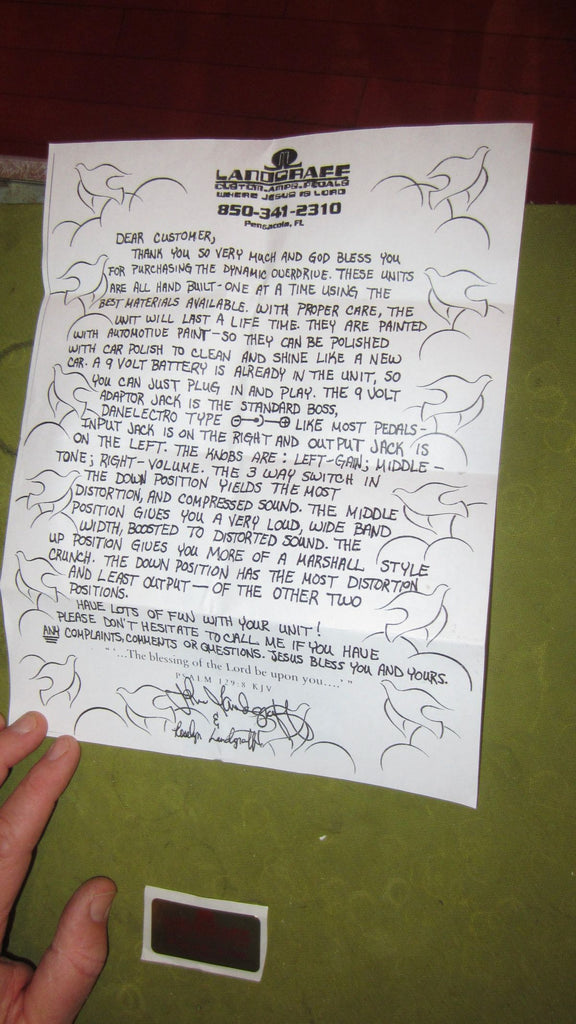 LANDGRAFF
CUSTOM-AMPS-PEDALS
WHERE JESUS IS LORD
850-341-2310
Pensacola, FL
DEAR CUSTOMER,
THANK YOU SO VERY MUCH AND GOD BLESS YOU
FOR PURCHASING THE DYNAMIC OVERDRIVE. THESE UNITS
ARE ALL HAND BUILT-ONE AT A TIME USING THE
BEST MATERIALS AVAILABLE. WITH PROPER CARE, THE
UNIT WILL LAST A LIFE TIME. THEY ARE PAINTED
WITH AUTOMOTIVE PAINT-SO THEY CAN BE POLISHED
WITH CAR POLISH TO CLEAN AND SHINE LIKE A NEW
CAR. A 9 VOLT BATTERY IS ALREADY IN THE UNIT, SO
YOU CAN JUST PLUG IN AND PLAY. THE 9 VOLT
ADAPTOR JACK IS THE STANDARD BOSS,
DANELECTRO TYPE LIKE MOST PEDALS-
INPUT JACK IS ON THE RIGHT AND OUTPUT JACK IS
ON THE LEFT. THE KNOBS ARE: LEFT-GAIN; MIDDLE-
TONE; RIGHT-VOLUME. THE 3 WAY SWITCH IN
THE DOWN POSITION YIELDS THE MOST
DISTORTION, AND COMPRESSED SOUND. THE MIDDLE
POSITION GIVES YOU A VERY LOUD, WIDE BAND
WIDTH, BOOSTED TO DISTORTED SOUND. THE
UP POSITION GIVES YOU MORE OF A MARSHALL STYLE
CRUNCH. THE DOWN POSITION HAS THE MOST DISTORTION
AND LEAST OUTPUT- OF THE OTHER TWO
POSITIONS.
HAVE LOTS OF FUN WITH YOUR UNIT!
PLEASE DON'T HESITATE TO CALL ME IF YOU HAVE
ANY COMPLAINTS, COMMENTS OR QUESTIONS. JESUS BLESS YOU AND YOURS.
"'...The blessing of the Lord be upon you....'"
PSALM 129:8 KJV
John Landgraff
&
Landgraff